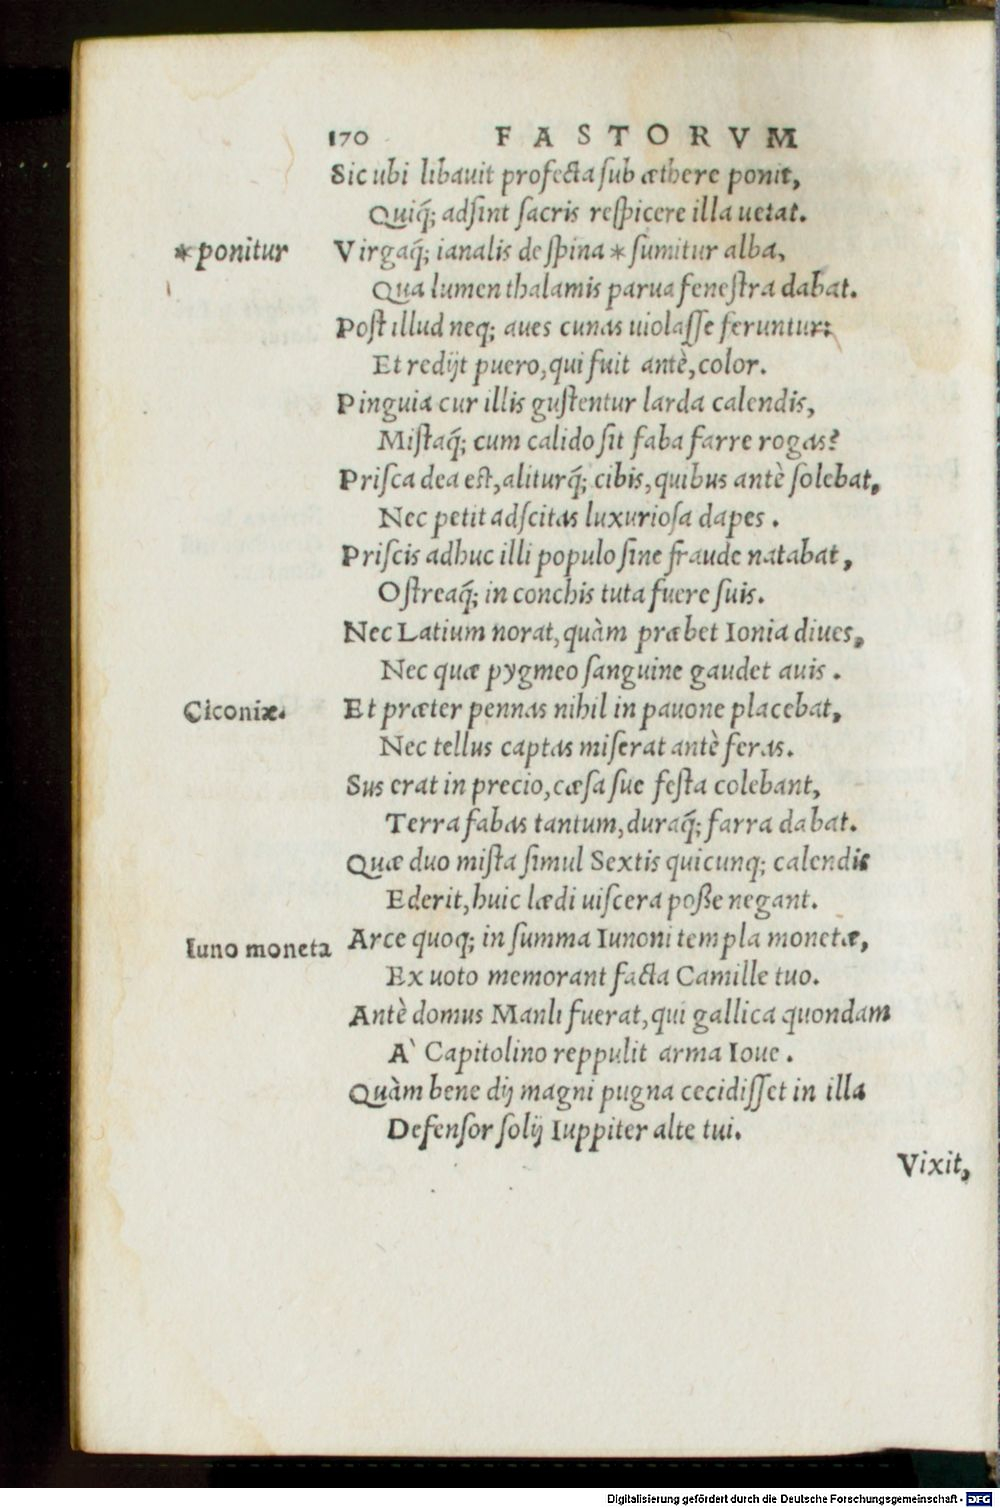 170 FASTORVM
Sic ubi libauit profecta sub æthere ponit,
Quiq́; adſint ſacris reſpicere illa uetat.
*ponitur
Virgaq́; ianalis de ſpina * ſumitur alba,
Qua lumen thalamis parua feneſtra dabat.
Poſt illud neq; aues cunas uiolaſſe feruntur:
Et redijt puero, qui fuit antè, color.
Pinguia cur illis guſtentur larda calendis,
Miſtaq́; cum calido ſit faba farre rogas?
Priſca dea eſt, aliturq́; cibis, quibus antè ſolebat,
Nec petit adſcitas luxurioſa dapes.
Priſcis adhuc illi populo ſine fraude natabat,
Oſtreaq́; in conchis tuta fuere ſuis.
Nec Latium norat, quàm præbet Ionia diues,
Nec quæ pygmeo ſanguine gaudet auis.
Ciconiæ.
Et præter pennas nihil in pauone placebat,
Nec tellus captas miſerat antè feras.
Sus erat in precio, cæſa ſue feſta colebant,
Terra fabas tantum, duraq́; farra dabat.
Quæ duo miſta ſimul Sextis quicunq; calendis
Ederit, huic lædi uiſcera poße negant.
Iuno moneta
Arce quoq; in ſumma Iunoni templa monetæ,
Ex uoto memorant facta Camille tuo.
Antè domus Manli fuerat, qui gallica quondam
A` Capitolino reppulit arma Ioue.
Quàm bene dij magni pugna cecidiſſet in illa
Defenſor ſolij Iuppiter alte tui.
Vixit,
Digitalisierung gefördert durch die Deutsche Forschungsgemeinschaft - DFG